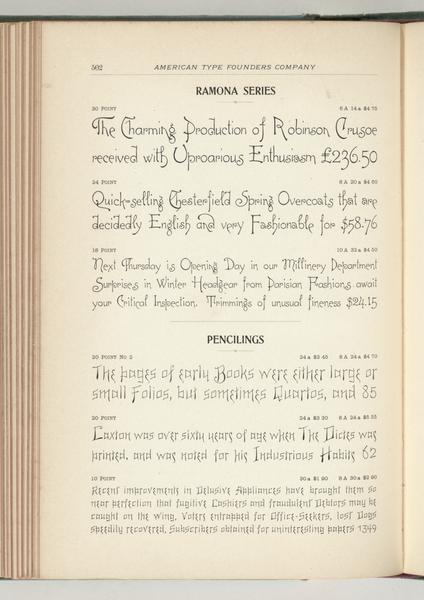 502
AMERICAN TYPE FOUNDERS COMPANY
RAMONA SERIES
30 POINT 6 A 14 a $4 75
The Charming Production of Robinson Crusoe
received with Uproarious Enthusiasm £236.50
24 POINT 8 A 20 a $4 60
Quick-selling Chesterfield Spring Overcoats that are
decidedly English and very Fashionable for $58.76
18 POINT 10 A 32 a $4 50
Next Thursday is Opening Day in our Millinery Department
Surprises in Winter Headgear from Parisian Fashions await
your Critical Inspection. Trimmings of unusual fineness $24.15
PENCILINGS
20 POINT NO 2 24 a $2 45 8 A 24 a $4 70
The pages of early Books were either large or
small Folios, but sometimes Quartos, and 85
20 POINT 24 a $3 30 8 A 24 a $5 55
Caxton was over sixty years of age when The Dictes was
printed, and was noted for his Industrious Habits 62
10 POINT 30 a $1 90 8 A 30 a $2 90
Recent improvements in Delusive Appliances have brought them so
near perfection that fugitive Cashiers and fraudulent Debtors may be
caught on the wing, Voters entrapped for Office-Seekers, lost Dogs
speedily recovered, Subscribers obtained for uninteresting papers 1349